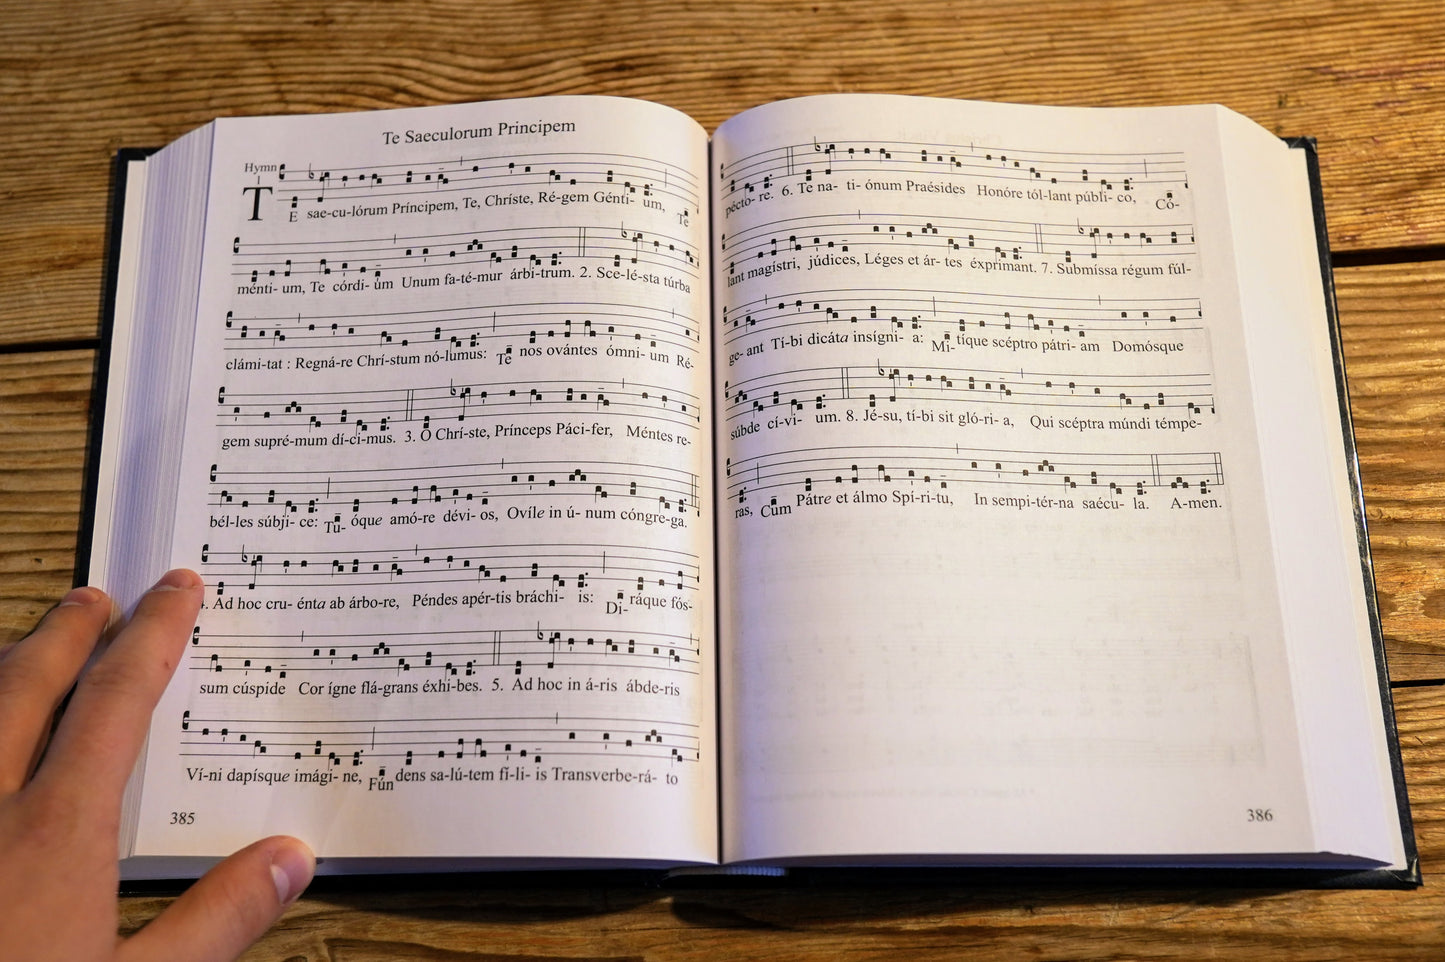 Te Saeculorum Principem
Hymn
TE sae-cu-lórum Príncipem, Te, Chríste, Ré-gem Génti- um, Té
ménti- um, Te córdi- um Unum fa-té-mur árbi-trum. 2. Sce-lé-sta túrba
clámi-tat : Regná-re Chrí-stum nó-lumus: Te nos ovántes ómni- um Ré-
gem supré-mum dí-ci-mus. 3. O Chrí-ste, Prínceps Páci-fer, Méntes re-
bél-les súbji- ce: Tu- óque amó-re dévi- os, Ovíle in ú- num cóngre-ga.
4. Ad hoc cru- énta ab árbo-re, Péndes apér-tis bráchi- is: Di- ráque fós-
sum cúspide Cor ígne flá-grans éxhi-bes. 5. Ad hoc in á-ris ábde-ris
Ví-ni dapísque imági- ne, Fún dens sa-lú-tem fí-li- is Transverbe-rá- to
385
péctο- re. 6. Te na- ti- ónum Praésides Honóre tól-lant públi- co, Có-
lant magístri, júdices, Léges et ár- tes éxprimant. 7. Submíssa régum fúl-
ge- ant Tí-bi dicáta insígni- a: Mi- tíque scéptro pátri- am Domósque
súbde cí-vi- um. 8. Jé-su, tí-bi sit gló-ri- a, Qui scéptra múndi témpe-
ras, Cum Pátre et álmo Spí-ri-tu, In sempi-tér-na saécu- la. A-men.
386